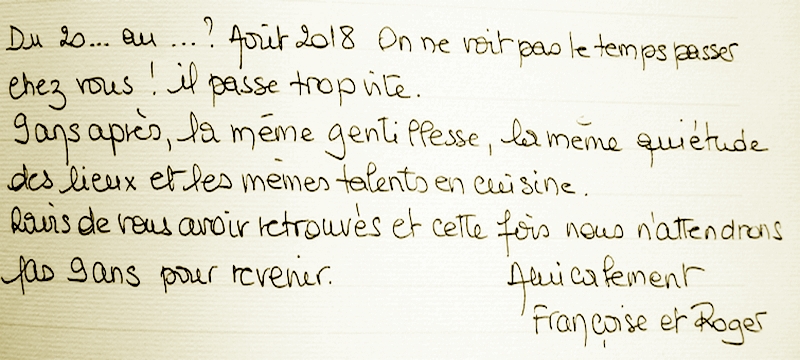 Du 20... au ...? Août 2018 On ne voit pas le temps passer
chez vous ! il passe trop vite.
9 ans après, la même gentillesse, la même quiétude
des lieux et les mêmes talents en cuisine.
Ravis de vous avoir retrouvés et cette fois nous n'attendrons
pas 9 ans pour revenir. Amicalement
Françoise et Roger